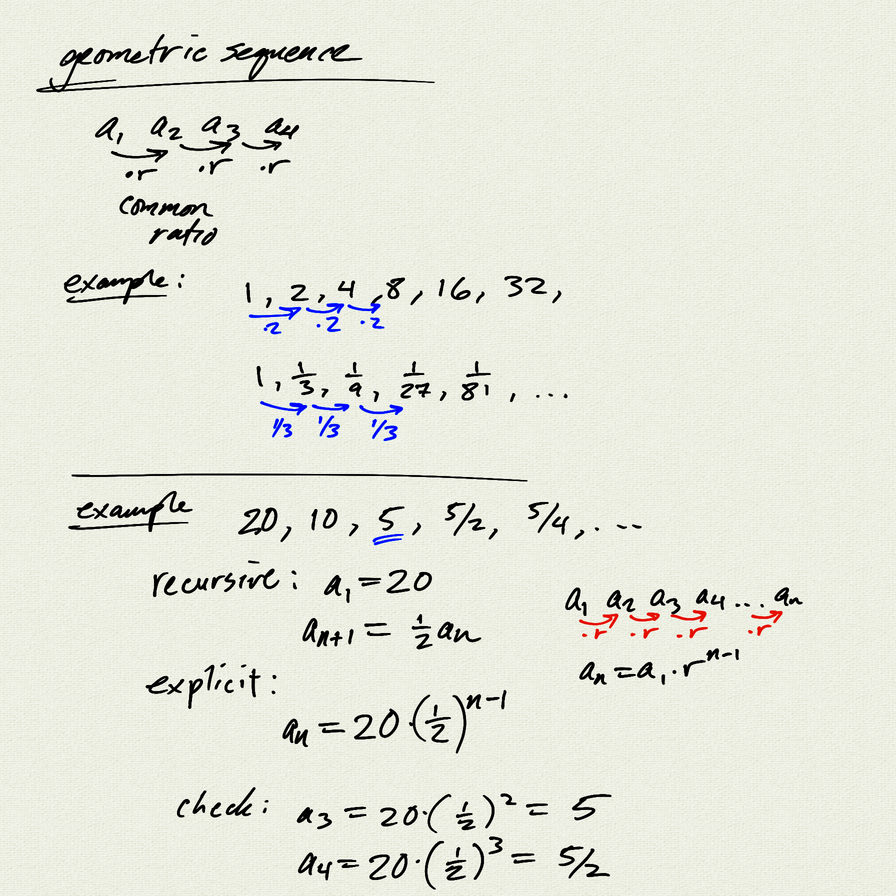 geometric sequence
a₁ a₂ a₃ a₄
·r ·r ·r
common
ratio
example: 1, 2, 4, 8, 16, 32,
·2 ·2 ·2
1, 1/3, 1/9, 1/27, 1/81, ...
1/3 1/3 1/3
example 20, 10, 5, 5/2, 5/4, ...
recursive: a₁ = 20
aₙ₊₁ = 1/2 aₙ
explicit:
aₙ = 20·(1/2)ⁿ⁻¹
a₁ a₂ a₃ a₄ ... aₙ
·r ·r ·r ·r
aₙ = a₁·rⁿ⁻¹
check: a₃ = 20·(1/2)² = 5
a₄ = 20·(1/2)³ = 5/2